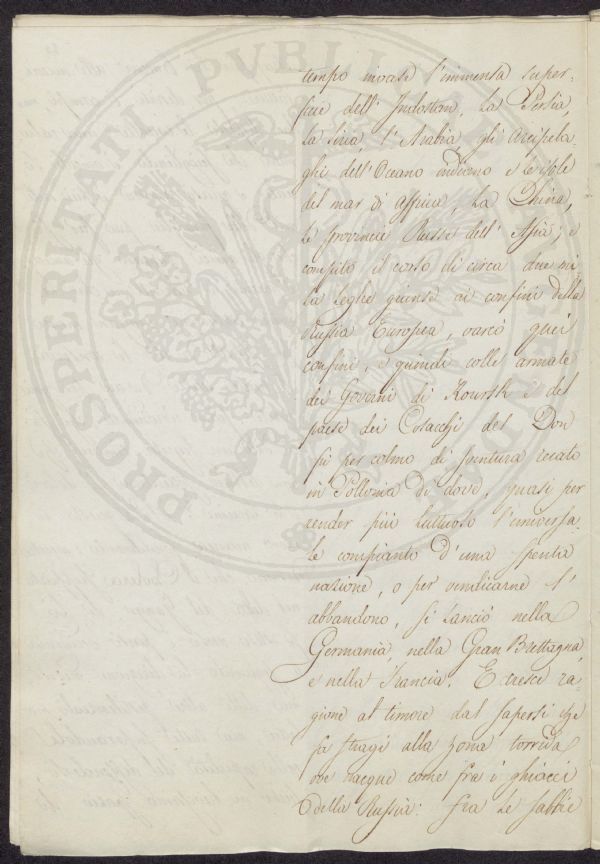 tempo invase l'immensa super-
ficie dell'Indostan, la Persia,
la Siria, l'Arabia, gli arcipela-
ghi dell'Oceano indiano e le isole
del mar di Affrica, la China,
le provincie Russe dell'Asia; e
compito il corso di circa due mi-
la leghe giunse ai confini della
Russia Europea, varcò quei
confini, e quindi colle armate
dei Governi di Koursk e del
paese dei Cosacchi del Don
fù per colmo di sventura recato
in Pollonia di dove, quasi per
render più luttuoso l'universa-
le compianto d'una spenta
nazione, o per vendicarne l'
abbandono, si lanciò nella
Germania, nella Gran Brettagna,
e nella Francia. E cresce ra-
gione al timore dal sapersi che
fa stragi alla zona torrida
ove nacque come fra i ghiacci
della Russia: fra le sabbie
PROSPERITATI PVBLICAE